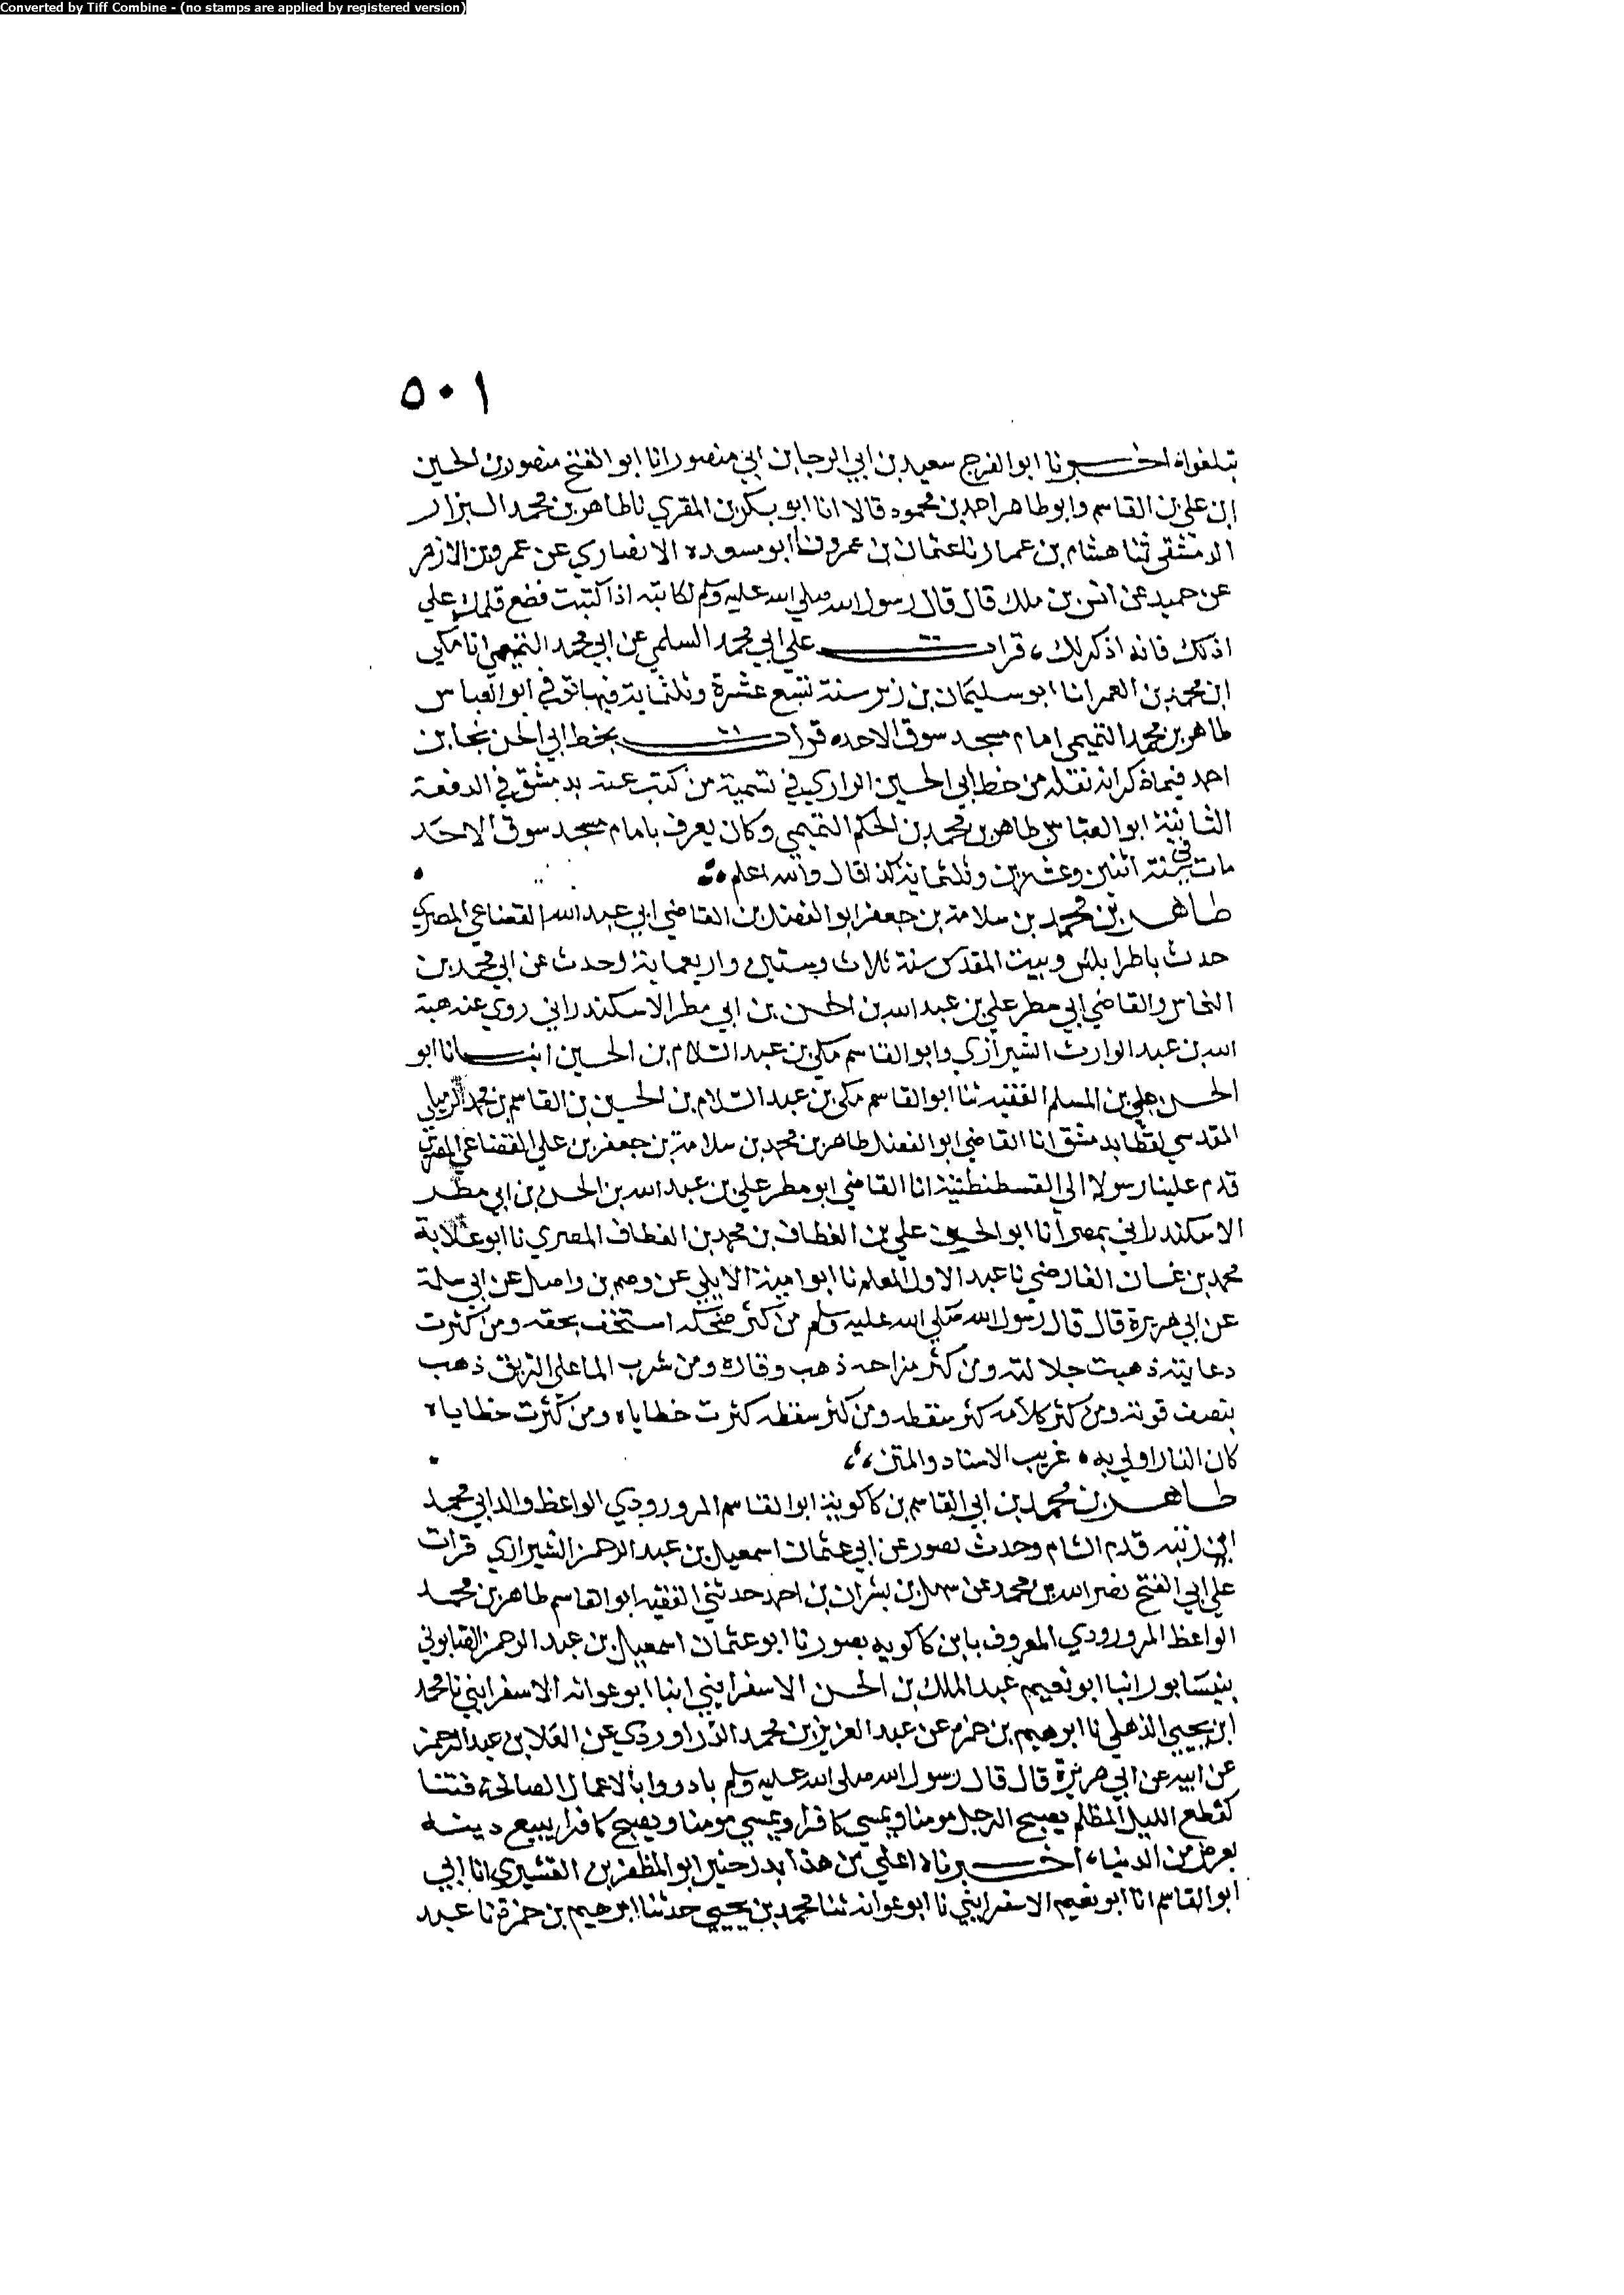 Converted by Tiff Combine - (no stamps are applied by registered version)
٥٠١
اخبرنا ابو الفرج سعيد بن ابي الرجا بن ابي منصور انا ابو الفتح منصور بن الحسين
ابن علي بن القاسم وابو طاهر احمد بن محمود قالا انا ابو بكر بن المقري نا طاهر بن محمد البزار
الدمشقي ثنا هشام بن عمار نا عثمان بن عمرو نا ابو مسوده الانصاري عن عمرو بن الازهر
عن حميد عن انس بن ملك قال قال رسول الله صلي الله عليه وسلم لكاتبه اذا كتبت فضع قلمك علي
اذنك فانه اذكر لك، قرات علي ابي محمد السلمي عن ابي محمد التميمي انا مكي
ابن محمد بن الغمر انا ابو سليمان بن زبر سنة تسع عشرة وثلثماية فيها توفي ابو العباس
طاهر بن محمد التميمي امام مسجد سوق الاحده قرات بخط ابي الحسن نجا بن
احمد فيما ذكر انه نقله من خط ابي الحسين الرازي في تسمية من كتب عنه بدمشق في الدفعة
الثانية ابو العباس طاهر بن محمد بن الحكم التميمي وكان يعرف بامام مسجد سوق الاحد
مات في سنة اثنين وعشرين وثلثماية كذا قال والله اعلم
طاهر بن محمد بن سلامة بن جعفر ابو الفضل بن القاضي ابي عبد الله القضاعي المصري
حدث باطرابلس وبيت المقدس سنة ثلاث وستين واربعماية وحدث عن ابي محمد بن
النحاس والقاضي ابي مطر علي بن عبد الله بن الحسن بن ابي مطر الاسكندراني روي عنه هبة
الله بن عبد الوارث الشيرازي وابو القاسم مكي بن عبد السلام بن الحسين انبانا ابو
الحسن علي بن المسلم الفقيه ثنا ابو القاسم مكي بن عبد السلام بن الحسين بن القاسم بن محمد الرميلي
المقدسي لفظا بدمشق انا القاضي ابو الفضل طاهر بن محمد بن سلامة بن جعفر بن علي القضاعي المصري
قدم علينا رسولا الي القسطنطنية انا القاضي ابو مطر علي بن عبد الله بن الحسن بن ابي مطر
الاسكندراني بمصر انا ابو الحسين علي بن الغطاف بن محمد بن الغطاف المصري نا ابو علاثة
محمد بن غسان الفارضي نا عبد الاول المعلم نا ابو امية الايلي عن وصم بن واصل عن ابي سلمة
عن ابي هريرة قال قال رسول الله صلي الله عليه وسلم من اكثر ضحكه استخف بحقه ومن اكثرت
دعابته ذهبت جلالته ومن كثر مزاحه ذهب وقاره ومن شرب الما علي الريق ذهب
بنصف قوته ومن كثر كلامه كثر سقطه ومن كثر سقطه كثرت خطاياه ومن كثرت خطاياه
كان النار اولي به ٠ غريب الاسناد والمتن،،
طاهر بن محمد بن ابي القاسم بن كاكويه ابو القاسم المروروذي الواعظ والد ابي محمد
ابن زينه قدم الشام وحدث بصور عن ابي عثمان اسمعيل بن عبد الرحمن الشيرازي قرات
علي ابي الفتح نصر الله بن محمد عن سهل بن بشران بن احمد حدثني الفقيه ابو القاسم طاهر بن محمد
الواعظ المروروذي المعروف بابن كاكويه بصور نا ابو عثمان اسمعيل بن عبد الرحمن الصابوني
بنيسابور انبا ابو نعيم عبد الملك بن الحسن الاسفرايني انبا ابو عوانه الاسفرايني نا محمد
ابن يحيي الذهلي نا ابرهيم بن حمزه عن عبد العزيز بن محمد الدراوردي عن العلا بن عبد الرحمن
عن ابيه عن ابي هريرة قال قال رسول الله صلي الله عليه وسلم بادروا بالاعمال الصالحة فتنا
كقطع الليل المظلم يصبح الرجل مومنا ويمسي كافرا ويمسي مومنا ويصبح كافرا يبيع دينه
بعرض من الدنيا، اخبرناه اعلي من هذا بدرجتين ابو المظفر بن القشيري انا ابي
ابو القاسم انا ابو نعيم الاسفرايني نا ابو عوانه ثنا محمد بن يحيي حدثنا ابرهيم بن حمزة نا عبد